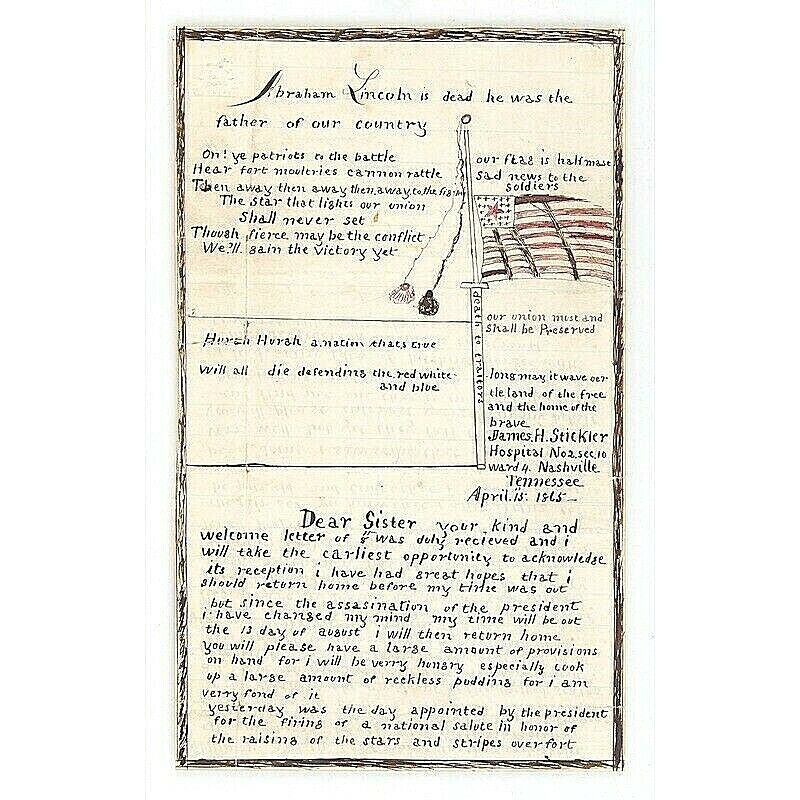 Abraham Lincoln is dead he was the
father of our country
On! ye patriots to the battle
Hear fort moultries cannon rattle
Then away then away then away to the fight
The star that lights our union
Shall never set
Though fierce may be the conflict
We'll gain the victory yet
our flag is halfmast
sad news to the
soldiers
death to traitors
Hurah Hurah a nation thats true
Will all die defending the red white
and blue
our union must and
shall be Preserved
long may it wave oer
tle land of the free
and the home of the
brave
James. H. Stickler
Hospital No 2. sec. 10
ward 4. Nashville
Tennessee
April. 15. 1865
Dear Sister your kind and
welcome letter of was duly recieved and i
will take the earliest opportunity to acknowledge
its reception i have had great hopes that i
should return home before my time was out
but since the assasination of the president
i have changed my mind my time will be out
the 13 day of august i will then return home
you will please have a large amount of provisions
on hand for i will be verry hungry especially cook
up a large amount of reckless pudding for i am
verry fond of it
yesterday was the day appointed by the president
for the firing of a national salute in honor of
the raising of the stars and stripes over fort